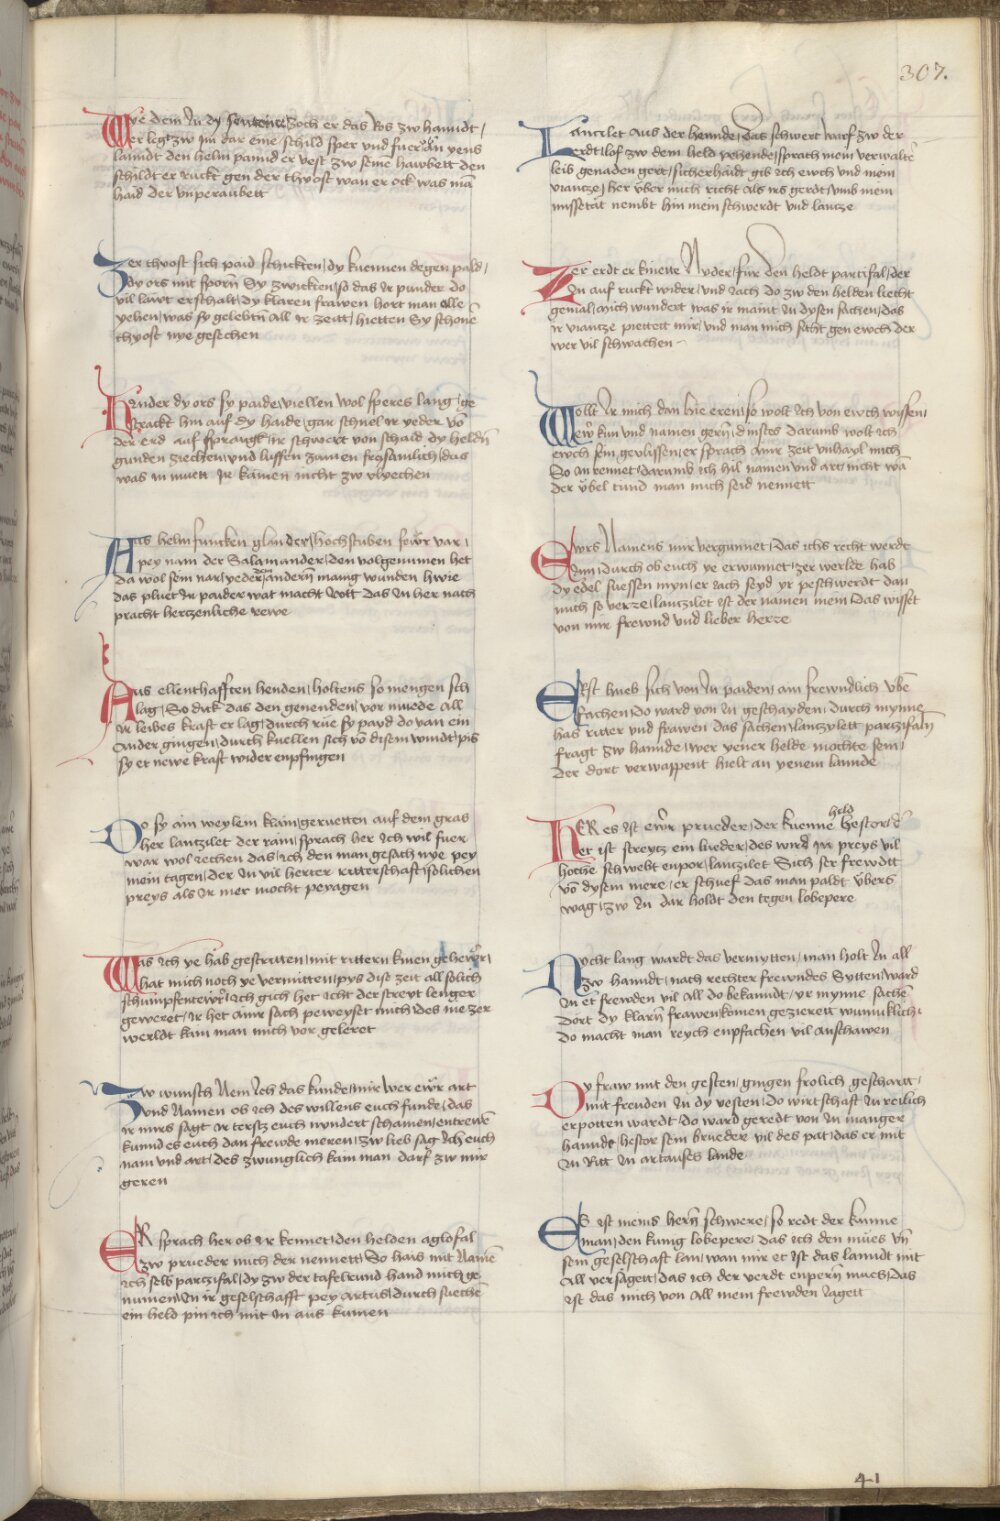 307.
Wye dem In dy senteneẅ Zoch er das Ros zw hanndt /
er legt zw Im dar eine / schild sper vnd fuer an yens
lanndt den helm pannd er vest zw seine hawbett den
schildt er ruckt gen der thyost wan er ock was ma
haid der vnperaubett
Zer thyost sich paid schickten / dy kuennen degen pald /
dy ors mit sporn Sy zwickten / so das Ir punder do
vil lawt erschalt / dy klaren frawen hort man alle
yehen / was sy gelebtn all Ir zeitt / hietten Sy schone
thyost nye gesechen
Hander dy ors sy paide / viellen wol speres lang / ge
strackt hin auf dy haide / gar schnel Ir yeder vo
der erd auf sprangk / Ir schwert von schald dy heldn
gunden ziechen / vnd luffen zamen fraysamlich / das
was In muett Ir kamen nicht zw vlyechen
Aus helm funcken glander / hoch stuben fewr var /
pey nam der Salamander / den volgenumen het
da wol sein nar / yeder dem andern manig wunden hwie
das pluet In paider wat macht Rott das In her nach
pracht hertzenliche rewe
Aus ellenthafften henden / holtens so mengen sch
lag / So dick das den genenden / vor muede all
Ir leibes kraft er lag / durch rue sy payd do van ein
Ander gingen / durch kuellen sich vo disem windt / pis
sy et newe kraft wider enpfingen
Do sy ain weylein kain / geruetten auf dem gras
her lantzilet der rain / sprach her Ich wil fuer
war wol iechen das / ich den man gesach nye pey
mein tagen / der In vil herter ritterschaft / sollichen
preys als Ir mer mocht peyagen
Was ich ye hab gestritten / mit rittern kuen gehewr /
hat mich noch ye vermitten / pys dise zeit all solich
schumpfentewr / Ich gich het icht der streyt lenger
geweret / Ir het mir sach peweyset mich / des nie zer
werldt kain man mich vor geleret
Zw wunsch Nem Ich das kunde / mir wer ewr art
vnd Namen ob ich des willens euch funde / das
Ir mirs sagt Ir tertz euch nyndert schamen / entrewe
kunnd es euch dan frewde meren / zw lieb sag Ich euch
nam vnd art / des zwunglich kain man darf zw mir
geren
ER sprach her ob Ir kennet / den helden aglosal
zw prueder mich der nennett / So hais mit Name
ich selb partzifal / dy zw der tafelrund hand mich ge
numen / In ir geselschafft pey Artus / durch suechen
ein held pin ich mit In aus kumen
Lantzelet aus der hennde / das schwert warf zw der
erdt / lof zw dem held yehende / sprach mein verwalte
leib genaden gert / sicherhaidt gib ich ewch vnd mein
viantze / her vber mich richt als irs gerdt / vmb mein
missetat nembt hin mein schwerdt vnd lantze
Zer erdt er kinette Nyder / fur den heldt partzifal / der
In auf ruckt wider / vnd Iach do zw den helden liecht
gemal / mich wundert was ir maint In dysen sachen / das
Ir viantze pietteit mir / vnd man mich sicht gen ewch der
wer vil schwachen
Wollt Ir mich dan hie eren / so wolt Ich von ewch wissen /
Ewr kun vnd namen gern / dinstes darumb wolt ich
ewch sein gevlissen / er sprach mir zeit vnhayl mich
So In rennet / darumb ich hil namen vnd art / nicht wa
der vbel tund man mich seid nennett
Ewrs Namens mir vergunnet / das ichs recht werdt
Inn / durch ob euch ye erwunnet / zer werlde hab
dy edel suessen myn / er iach seyd yr peschwerdt dan
mich so verre / lantzilet ist der namen mein das wisset
von mir frewnd vnd lieber herre
ERst hueb sich von In paiden / ain frewndlich vbe
fachen / do ward von In geschayden / durch mynne
has ritter vnd frawen das sachen / lantzylett partzifaln
fragt zw hannde / wer yener helde mochte sein /
der dort verwappent hielt an yenem lannde
HER es ist ewr prueder / der kuenne held hestor / e
et ist streytz ein lueder / des wird Ir preys vil
hoche schwebt enpor / lantzilet Sich ser frewdtt
vo dysem mere / er schuef das man paldt vbers
wag / zw In dar holdt den tegen lobepere
Nycht lang wardt das vermytten / man holt In all
zw hanndt / nach rechter frewndes Sytten / ward
In et frewden vil all do bekanndt / yr mynne sache
dort dy klarn frawen komen gezierett wunniklich /
do macht man reych enpfachen vil anschawen
Dy fraw mit den gesten / gingen frolich geschartt /
mit freuden In dy vesten / do wirtschaft In reilich
erpotten wardt / do ward geredt von In manger
hanndt / hestor sein brueder vil des pat / das er mit
In Ritt In artauses lande
ES ist meins hern schwere / so redt der kunne
man / den kunig lobepere / das ich den mues vn
sein geselschaft lan / wan mir et ist das lanndt mit
all versagett / das ich der verdt enpern mues / das
ist das mich von all mein frewden Iagett
41